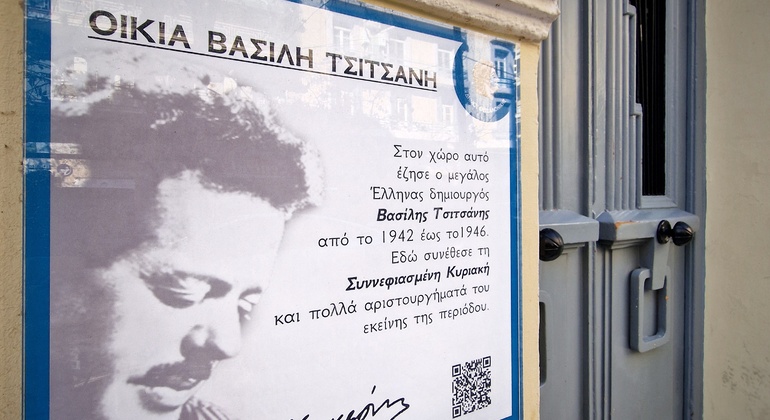 ΟΙΚΙΑ ΒΑΣΙΛΗ ΤΣΙΤΣΑΝΗ
Στον χώρο αυτό
έζησε ο μεγάλος
Έλληνας δημιουργός
Βασίλης Τσιτσάνης
από το 1942 έως το1946.
Εδώ συνέθεσε τη
Συννεφιασμένη Κυριακή
και πολλά αριστουργήματά του
εκείνης της περιόδου.